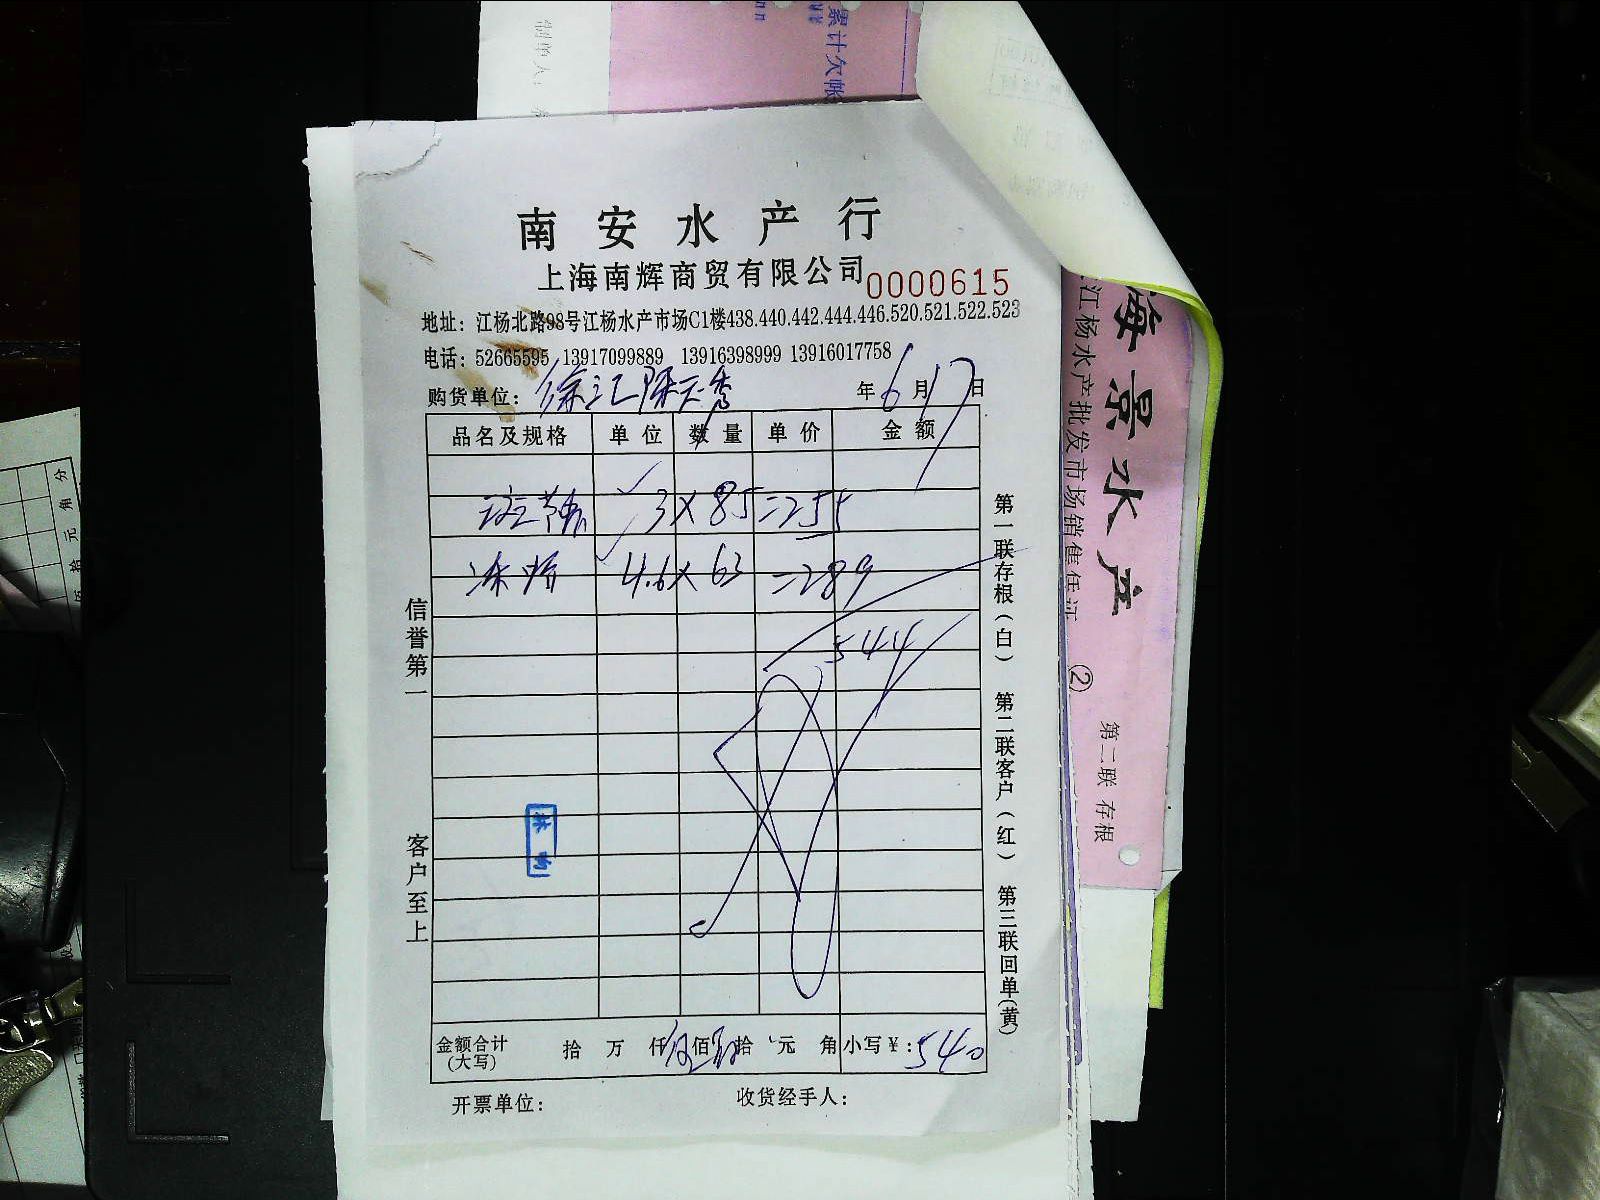 南安水产行
上海南辉商贸有限公司 0000615
地址：江杨北路98号江杨水产市场C1楼438.440.442.444.446.520.521.522.523
电话：52665595 13917099889 13916398999 13916017758
购货单位：徐汇 年6月17日
品名及规格 单位 数量 单价 金额
3×85=255
4.6×63=289
544
金额合计(大写) 拾 万 仟伍佰肆拾 元 角 小写¥：540
开票单位： 收货经手人：
信誉第一 客户至上
第一联存根（白） 第二联客户（红） 第三联回单（黄）
累计欠帐
制单人：
海景水产
江杨水产批发市场销售凭证
② 第二联 存根
分
角
元
拾